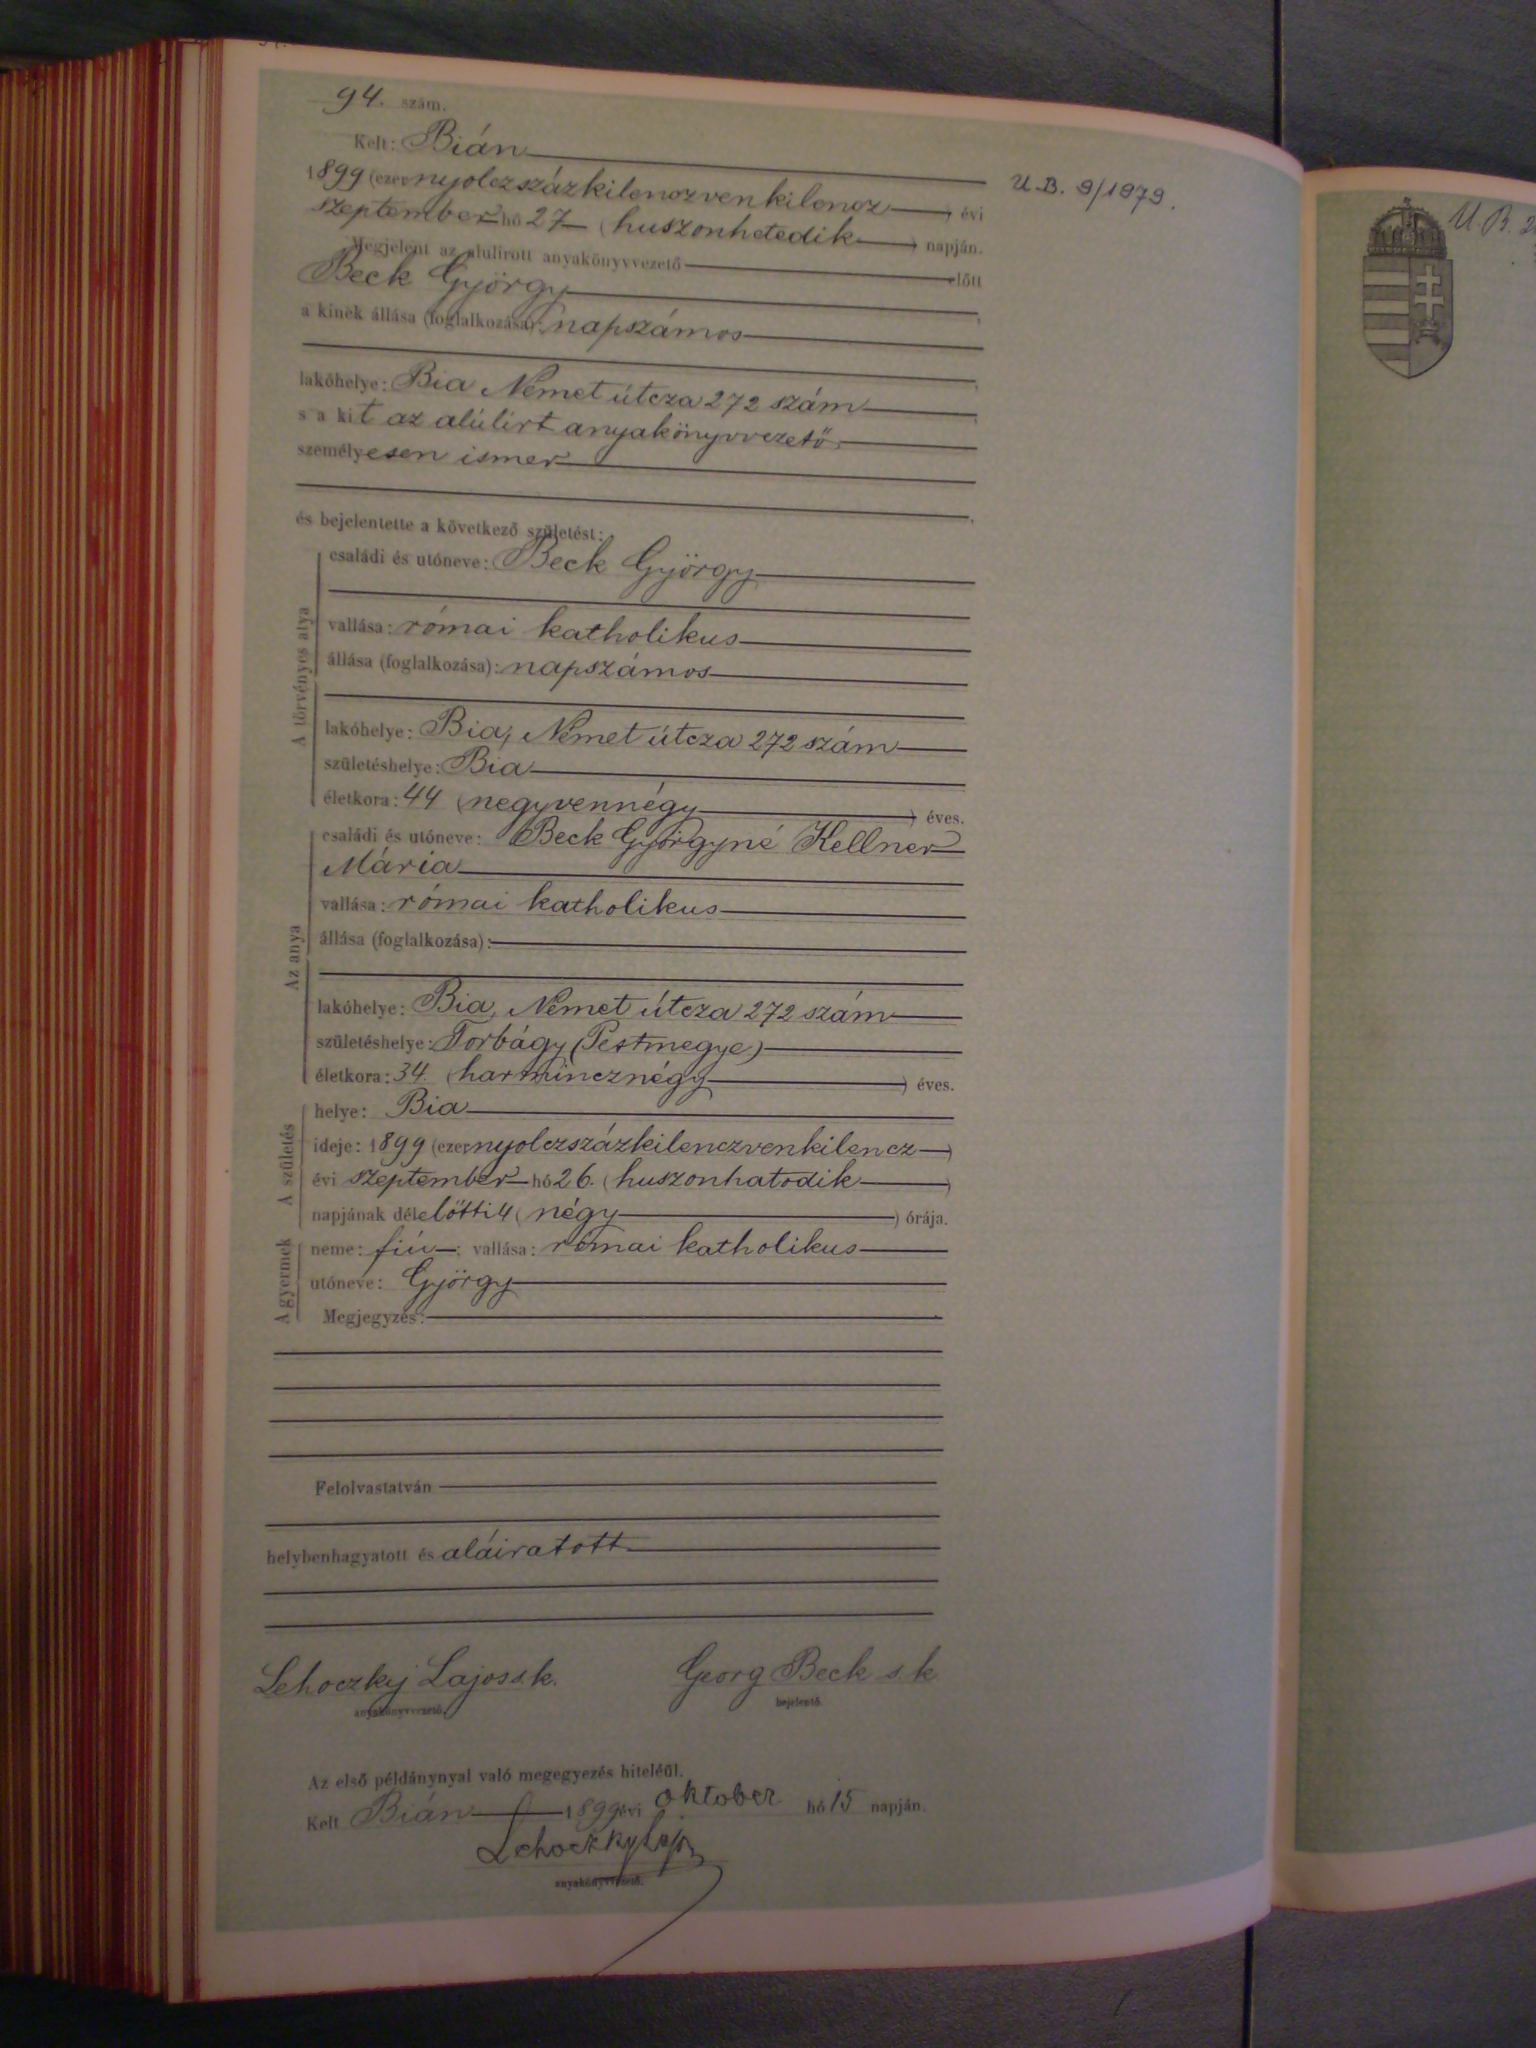 94. szám.
Kelt: Bián
1899 (ezernyolczszázkilenczvenkilencz) évi
U. B. 9/1979.
szeptember hó 27 (huszonhetedik) napján.
Megjelent az alulirott anyakönyvvezető előtt
Beck György
a kinek állása (foglalkozása): napszámos
lakóhelye: Bia Német útcza 272 szám
s a kit az alúlirt anyakönyvvezető
személyesen ismer
és bejelentette a következő születést:
A törvényes atya
családi és utóneve: Beck György
vallása: római katholikus
állása (foglalkozása): napszámos
lakóhelye: Bia, Német útcza 272 szám
születéshelye: Bia
életkora: 44 (negyvennégy) éves.
Az anya
családi és utóneve: Beck Györgyné Kellner
Mária
vallása: római katholikus
állása (foglalkozása):
lakóhelye: Bia, Német útcza 272 szám
születéshelye: Torbágy (Pestmegye)
életkora: 34. (harmincznégy) éves.
A születés
helye: Bia
ideje: 1899 (ezernyolczszázkilenczvenkilencz)
évi szeptember hó 26. (huszonhatodik)
napjának délelőtti 4 (négy) órája.
A gyermek
neme: fiú; vallása: római katholikus
utóneve: György
Megjegyzés:
Felolvastatván
helybenhagyatott és aláiratott
Lehoczky Lajos s. k.
anyakönyvvezető.
Georg Beck s. k.
bejelentő.
Az első példánynyal való megegyezés hiteléül.
Kelt Bián 1899 évi oktober hó 15 napján.
Lehoczky Lajos
anyakönyvvezető.
U. B.